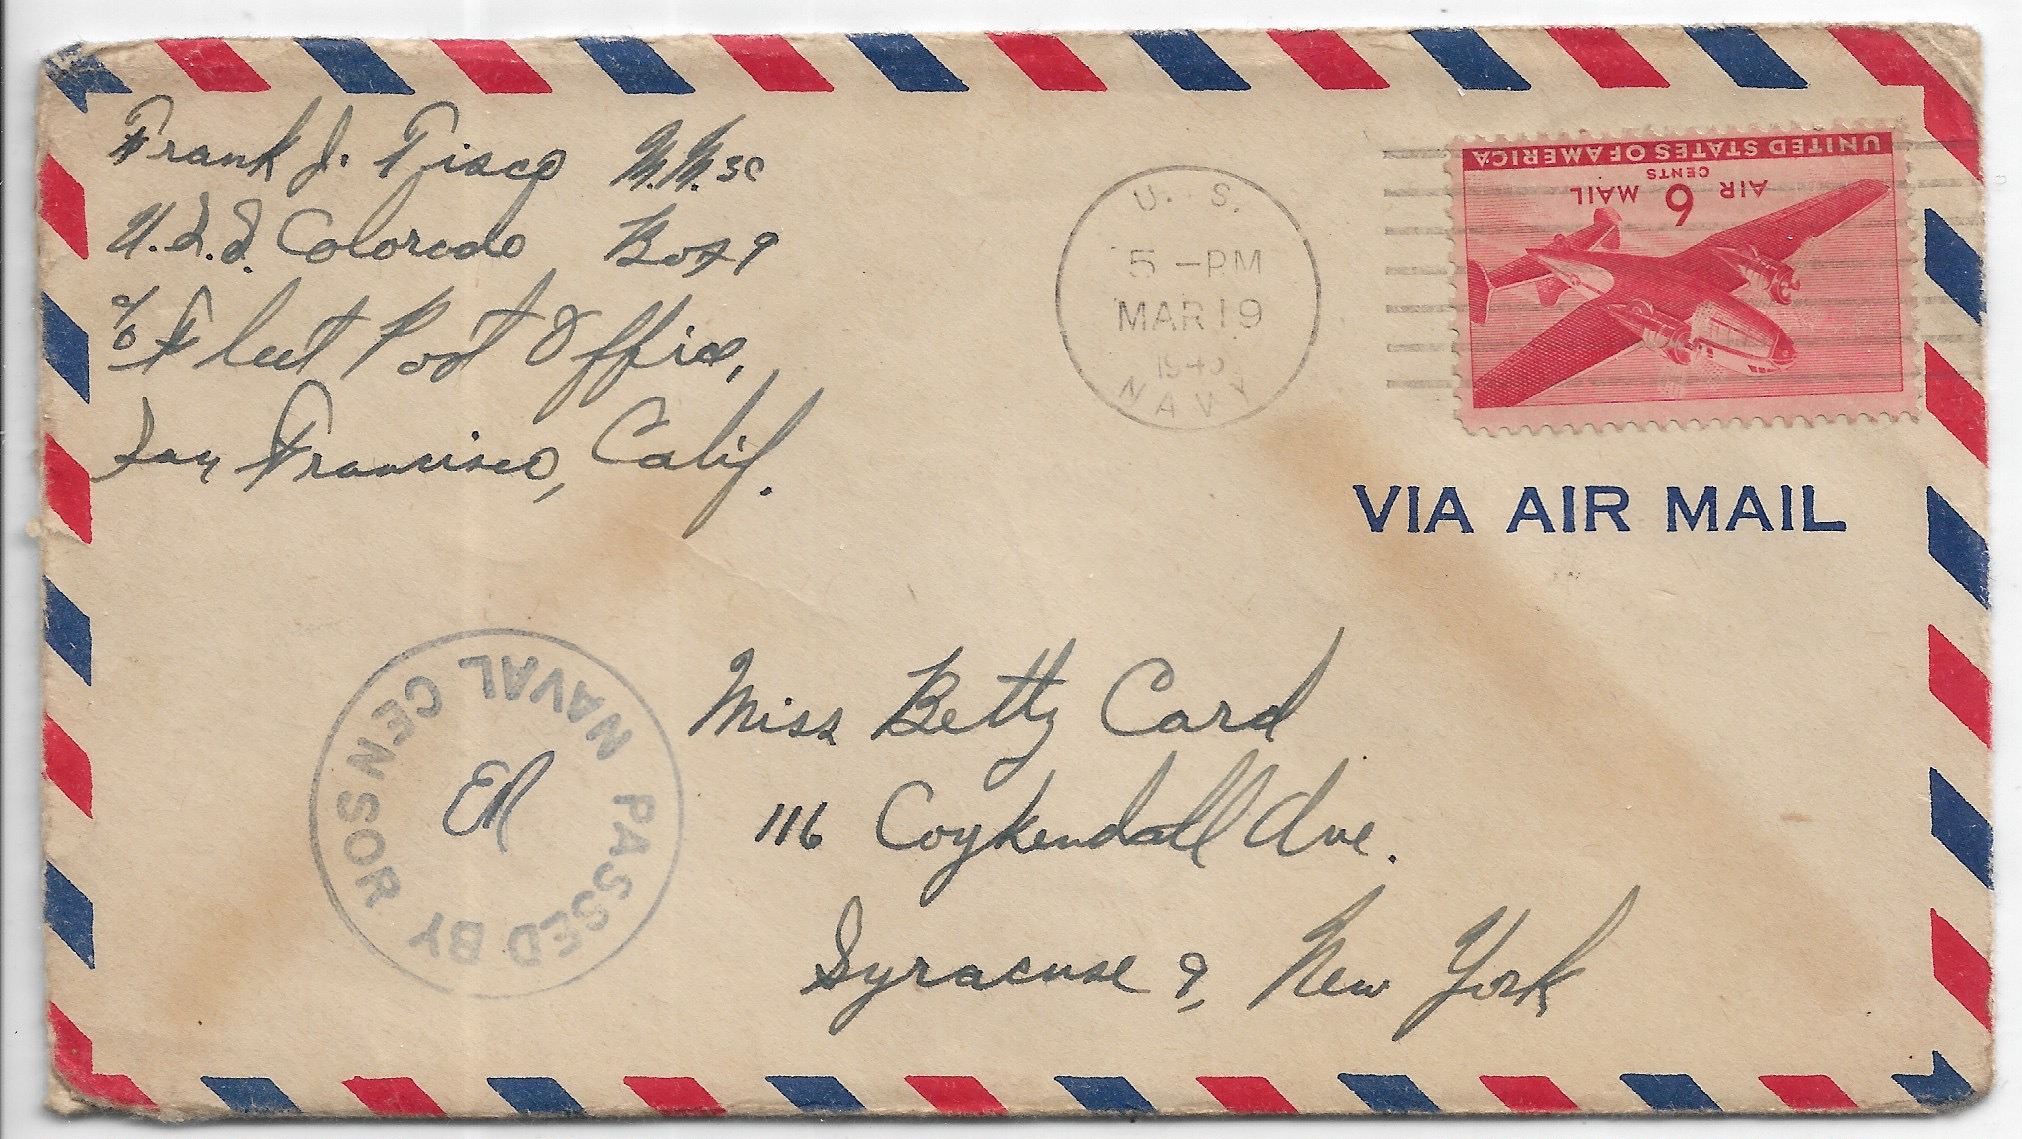 Frank J. Tisco M.M.3C
U.S.S. Colorado Box 9
c/o Fleet Post Office,
San Francisco, Calif.
U. S.
5 -PM
MAR 19
1945
NAVY
UNITED STATES OF AMERICA
CENTS
AIR 6 MAIL
VIA AIR MAIL
PASSED BY NAVAL CENSOR
Miss Betty Card
116 Coykendall Ave.
Syracuse 9, New York